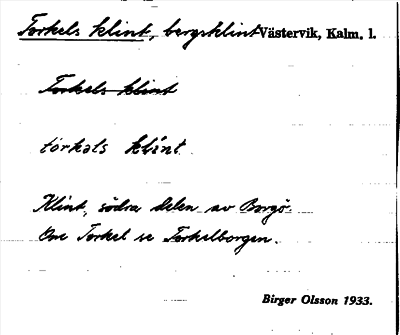 Torkels klint, bergsklint Västervik, Kalm. l.
Torkels klint
tórkəls klìnt
Klint, södra delen av Borgö.
Om Torkel se Torkelborgen.
Birger Olsson 1933.